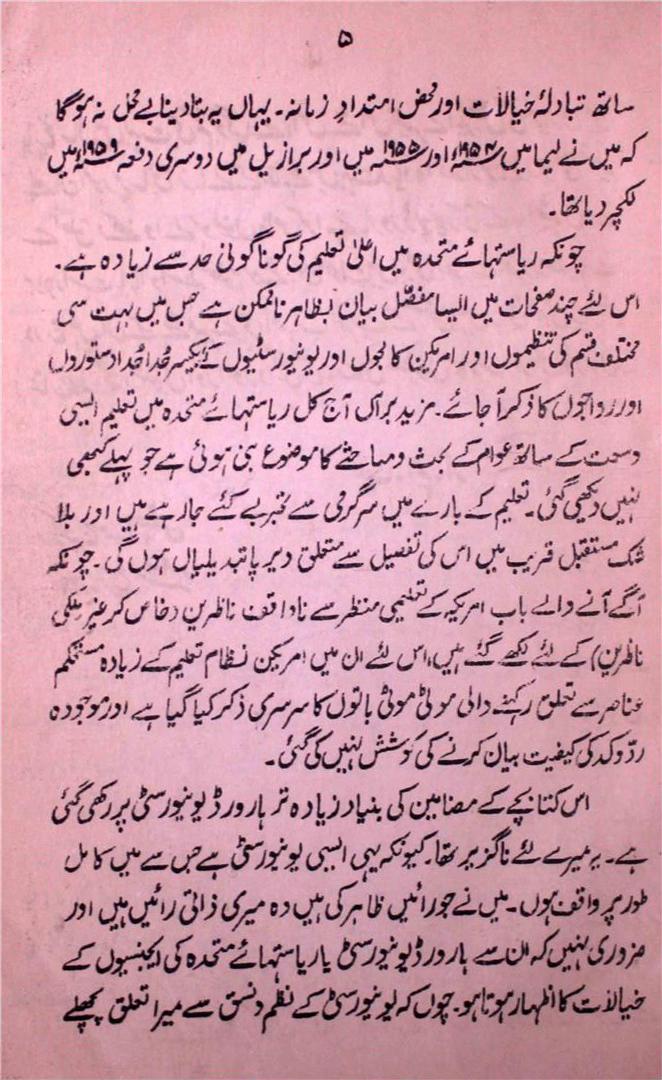 ۵
ساتھ تبادلۂ خیالات اور محض امتدادِ زمانہ۔ یہاں یہ بتا دینا بے محل نہ ہوگا
کہ میں نے لیما میں ۱۹۵۴ء اور ۱۹۵۵ء میں اور برازیل میں دوسری دفعہ ۱۹۵۹ء میں
لکچر دیا تھا۔
چونکہ ریاستہائے متحدہ میں اعلیٰ تعلیم کی گوناگونی حد سے زیادہ ہے۔
اس لئے چند صفحات میں ایسا مفصّل بیان بظاہر ناممکن ہے جس میں بہت سی
مختلف قسم کی تنظیموں اور امریکن کالجوں اور یونیورسٹیوں کے یکسر جُدا جُدا دستوروں
اور رواجوں کا ذکر آ جائے۔ مزید برآں آج کل ریاستہائے متحدہ میں تعلیم ایسی
وسعت کے ساتھ عوام کے بحث و مباحثے کا موضوع بنی ہوئی ہے جو پہلے کبھی
نہیں دیکھی گئی۔ تعلیم کے بارے میں سرگرمی سے تجربے کئے جا رہے ہیں اور بلا
شک مستقبل قریب میں اس کی تفصیل سے متعلق دیرپا تبدیلیاں ہوں گی۔ چونکہ
آگے آنے والے باب امریکہ کے تعلیمی منظر سے ناواقف ناظرین (خاص کر غیر ملکی
ناظرین) کے لئے لکھے گئے ہیں، اس لئے ان میں امریکن نظام تعلیم کے زیادہ مستحکم
عناصر سے تعلق رکھنے والی موٹی موٹی باتوں کا سرسری ذکر کیا گیا ہے اور موجودہ
ردّ وکد کی کیفیت بیان کرنے کی کوشش نہیں کی گئی۔
اس کتابچے کے مضامین کی بنیاد زیادہ تر ہارورڈ یونیورسٹی پر رکھی گئی
ہے۔ یہ میرے لئے ناگزیر تھا۔ کیونکہ یہی ایسی یونیورسٹی ہے جس سے میں کامل
طور پر واقف ہوں۔ میں نے جو رائیں ظاہر کی ہیں وہ میری ذاتی رائیں ہیں اور
ضروری نہیں کہ ان سے ہارورڈ یونیورسٹی یا ریاستہائے متحدہ کی ایجنسیوں کے
خیالات کا اظہار ہوتا ہو۔ چوں کہ یونیورسٹی کے نظم و نسق سے میرا تعلق پچھلے